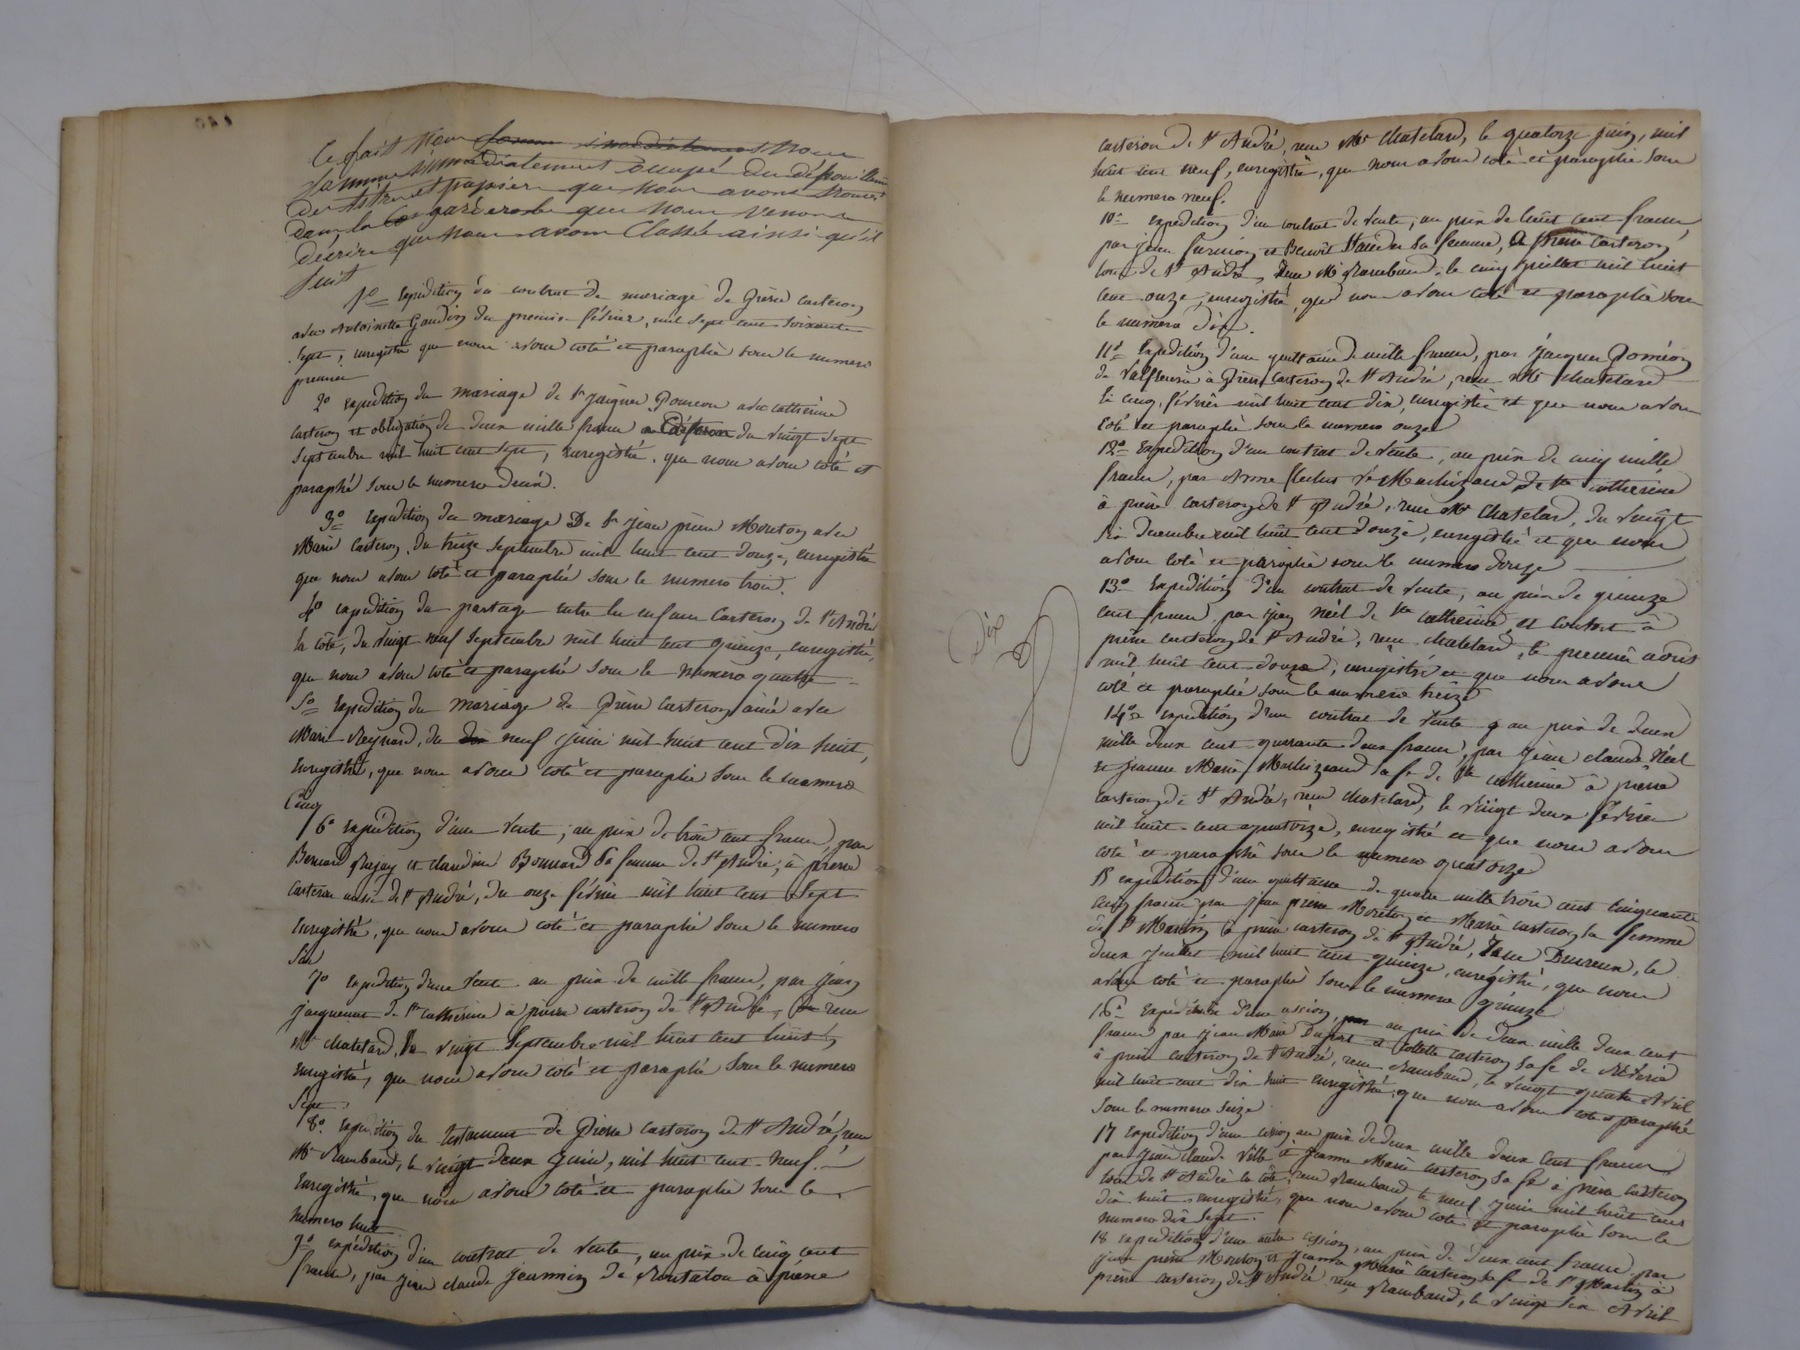 Ce fait Nous sommes immediatement Nous
sommes immediatement occupé du dépouillem
des titres et papiers que Nous avons trouvés
dans la garderobe que Nous venons
décrire que Nous avons Classé ainsi qu'il
suit
1o Expedition du contrat de mariage de Pierre Casteron
avec Antoinette Gaudin du premier février, mil sept cent soixante
sept, enregistré que nous avons coté et paraphé sous le numero
premier
2o expedition du mariage de sr Jacques Poncon avec catherine
Casteron et obligation de deux mille francs du vingt sept
septembre mil huit cent sept, enregistré, que nous avons coté et
paraphé sous le numero deux.
3o Expedition du mariage De sr jean pierre Mouton avec
Marie Casteron, du treize septembre mil huit cent douze, enregistré
que nous avons coté et paraphé sous le numero trois.
4o expedition du partage entre les enfans Casteron de st André
la cote, du vingt neuf septembre mil huit cent quinze, enregistré,
que nous avons coté et paraphé sous le Numero quatre
5o Expedition du mariage de Pierre Casteron ainé avec
Marie Reynard, du dix neuf juin mil huit cent dix huit,
Enregistré, que nous avons coté et paraphé sous le numero
Cinq
6o expedition d'une vente, au prix de trois cent francs, par
Bernard et claudine Bonnard sa femme de st André, à pierre
Casteron ainé de st André, du onze février mil huit cent sept
Enregistré, que nous avons coté et paraphé sous le numero
six
7o expedition d'une vente au prix de mille francs, par jean
jacquemot de ste catherine à pierre casteron de st André, reçu
Me chatelard, du vingt septembre mil huit cent huit,
enregistré, que nous avons coté et paraphé sous le numero
Sept
8o expedition du testament de Pierre Casteron de st André, reçu
Me Rambaud, le vingt deux juin, mil huit cent neuf.
Enregistré, que nous avons coté et paraphé sous le
Numero huit
9o expédition d'un contrat de vente, au prix de cinq cent
francs, par jean claude jeannin de Rontalon à pierre
casteron de st André, reçu Me Chatelard, le quatorze juin, mil
huit cent neuf, enregistré, que nous avons coté et paraphé sous
le numero neuf.
10o expedition d'un contrat de vente, au prix de huit cent francs,
par jean et Benoit sa femme, à pierre casteron,
tous de st André, reçu Me Rambaud, le cinq juillet mil huit
cent onze, enregistré, que nous avons coté et paraphé sous
le numero dix.
11o Expedition d'une quittance de mille francs, par jacques Poméon
de Valfleurie à Pierre casteron de st André, reçu Me chatelard
le cinq février mil huit cent dix, enregistré et que nous avons
coté et paraphé sous le numero onze
12o Expedition d'un contrat de vente, au prix de cinq mille
francs, par Anne ve Machizaud de ste catherine
à pierre casteron de st André, reçu Me Chatelard, du vingt
six decembre mil huit cent douze, enregistré et que nous
avons coté et paraphé sous le numero douze
13o Expedition d'un contrat de vente, au prix de quinze
cent francs par jean Néel de ste catherine et consort à
pierre casteron de st André, reçu chatelard, le premier août
mil huit cent douze, enregistré et que nous avons
coté et paraphé sous le numero treize
Dix
14o expedition d'un contrat de vente au prix de deux
mille deux cent quarante deux francs, par jean claude Néel
et jeanne Marie Machizeaud sa fe de ste catherine à pierre
casteron de st André, reçu chatelard, le vingt deux février
mil huit cent quatorze, enregistré et que nous avons
coté et paraphé sous le numero quatorze
15 expedition d'une quittance de quatre mille trois cent cinquante
cinq francs par jean pierre Mouton et Marie casteron sa femme
de st Martin à pierre casteron de st André, reçu Ducreux, le
deux juillet mil huit cent quinze, enregistré, que nous
avons coté et paraphé sous le numero quinze
16o Expedition d'une cession, par au prix de deux mille deux cent
francs par jean Marie Dupont et Colette casteron sa fe de Riverie
à pierre casteron de st André, reçu Rambaud, le vingt quatre Avril
mil huit cent dix huit enregistré, que nous avons coté et paraphé
sous le numero seize
17 expedition d'une cession au prix de deux mille deux cent francs
par jean claude Ville et jeanne Marie casteron sa fe à pierre casteron
tous de st André la cote, reçu Rambaud le neuf juin mil huit cent
dix huit enregistré, que nous avons coté et paraphé sous le
numero dix sept.
18 expedition d'une autre cession, au prix de deux cent francs par
jean pierre Mouton et jeanne Marie casteron sa fe de st Martin à
pierre casteron de st André reçu Rambaud, le vingt six Avril